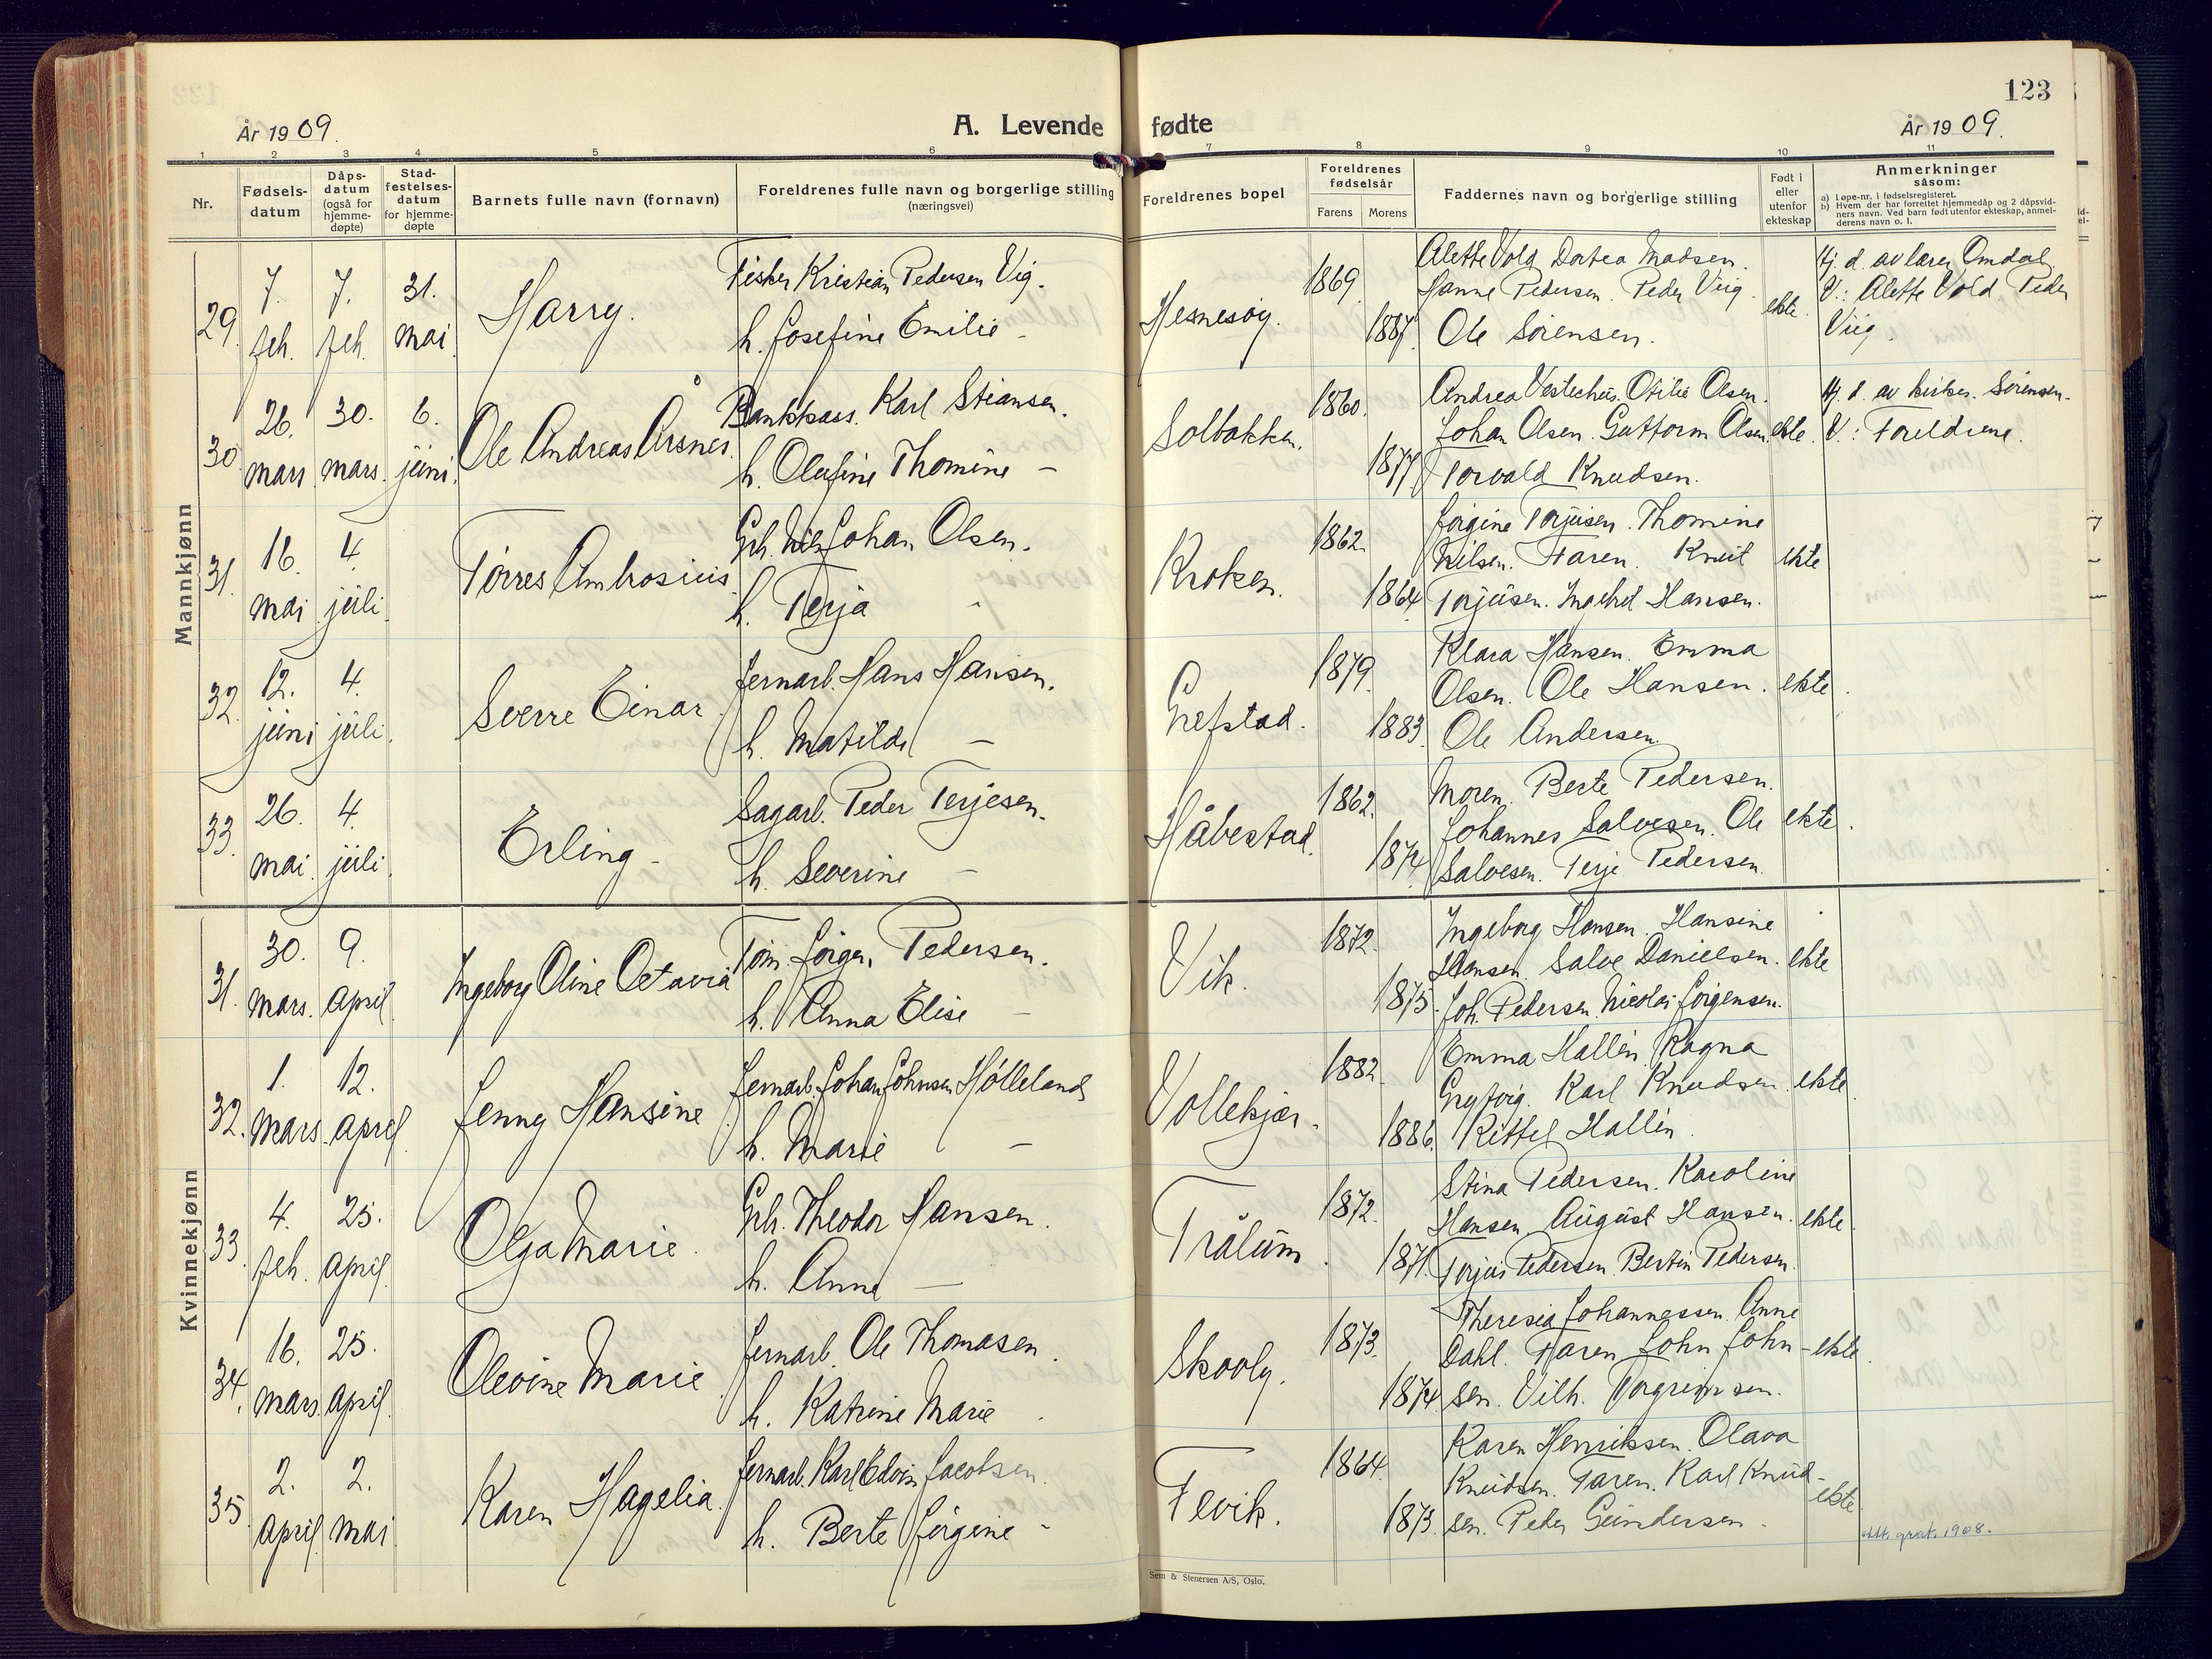 123
År 1909.
A. Levende fødte
År 1909.
1 2 3 4 5 6 7 8 9 10 11
Nr.
Fødsels-
datum
Dåps-
datum
(også for
hjemme-
døpte)
Stad-
festelses-
datum
for hjemme-
døpte
Barnets fulle navn (fornavn)
Foreldrenes fulle navn og borgerlige stilling
(næringsvei)
Foreldrenes bopel
Foreldrenes
fødselsår
Farens Morens
Faddernes navn og borgerlige stilling
Født i
eller
utenfor
ekteskap
Anmerkninger
såsom:
a) Løpe-nr. i fødselsregisteret.
b) Hvem der har forrettet hjemmedåp og 2 dåpsvid-
ners navn. Ved barn født utenfor ekteskap, anmel-
derens navn o. l.
Mannkjønn
29. 7. feb. 7. feb. 31. mai Harry.
Fisker Kristian Pedersen Vig.
h. Josefine Emilie -
Hesnesøy. 1869. 1887.
Alette Vold Dortea Madsen.
Hanne Pedersen. Peder Viig.
Ole Sørensen.
ekte.
Hj. d. av lærer Omdal
V.: Alette Vold. Peder
Viig.
30. 26. mars 30. mars. 6. juni. Ole Andreas Årsnes.
Bankkass. Karl Stiansen.
h. Olufine Thomine -
Solbakken. 1860. 1877.
Andrea Vestechus. Otilie Olsen.
Johan Olsen. Guttorm Olsen.
Torvald Knudsen.
ekte.
Hj. d. av kirkes. Sørensen.
V.: Foreldrene.
31. 16. mai 4. juli. Tørres Ambrosius.
Grb. Nils Johan Olsen.
h. Terja -
Kroken. 1862. 1864
Jørgine Torjusen. Thomine
Nilsen. Faren. Knut
Torjusen. Ingebret Hansen.
ekte
32. 12. juni 4. juli. Sverre Einar.
Jernarb. Hans Hansen.
h. Matilde -
Grefstad. 1879. 1883.
Klara Hansen. Emma
Olsen. Ole Hansen.
Ole Andersen.
ekte.
33. 26. mai. 4. juli. Erling.
Sagarb. Peder Terjesen.
h. Severine -
Håbestad. 1862. 1874.
Moren. Berte Pedersen.
Johannes Salvesen. Ole
Salvesen. Terje Pedersen.
ekte.
Kvinnekjønn
31. 30. mars. 9. april. Ingeborg Oline Octavia
Tøm. Jørgen Pedersen.
h. Anna Elise -
Vik. 1872. 1875.
Ingeborg Hansen. Hansine
Hansen. Salve Danielsen.
Joh. Pedersen. Nicolai Jørgensen.
ekte
32. 1. mars. 12. april Jenny Hansine.
Jernarb. Johan Johnsen Hølleland
h. Marie -
Vollekjær. 1882. 1886.
Emma Hallin. Ragna
Grytvig. Karl Knudsen.
Kittel Hallin.
ekte.
33. 4. feb. 25. april. Olga Marie.
Grb. Theodor Hansen.
h. Anna -
Trålum. 1872. 1871.
Stina Pedersen. Karoline
Hansen. August Hansen.
Torjus Pedersen. Bertin Pedersen.
ekte.
34. 16. mars. 25. april. Olevine Marie.
Jernarb. Ole Thomasen.
h. Katrine Marie.
Skovly. 1873. 1874.
Theresia Johannessen. Anne
Dahl. Faren. John John-
sen. Vilh. Torgrimsen.
ekte.
35. 2. april 2. mai Karen Hagelia.
Jernarb. Karl Edvin Jacobsen.
h. Berte Jørgine -
Fevik. 1864. 1873.
Karen Henriksen. Olava
Knudsen. Faren. Karl Knud-
sen. Peder Gundersen.
ekte.
1908.
Sem & Stenersen A/S, Oslo.